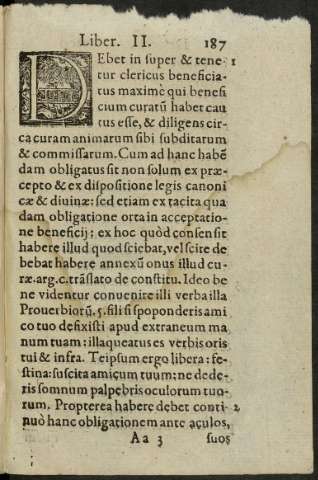 Liber. II. 187
DEbet in super & tene- 1
tur clericus beneficia-
tus maximè qui benefi
cium curatũ habet cau
tus esse, & diligens cir-
ca curam animarum sibi subditarum
& commissarum. Cum ad hanc habẽ
dam obligatus sit non solum ex præ-
cepto & ex dispositione legis canoni
cæ & diuinæ: sed etiam ex tacita qua
dam obligatione orta in acceptatio-
ne beneficij: ex hoc quòd consensit
habere illud quod sciebat, vel scire de
bebat habere annexũ onus illud cu-
ræ. arg. c. trãslato de constitu. Ideo be
ne videntur conuenire illi verba illa
Prouerbiorũ. 5. fili si spoponderis ami
co tuo defixisti apud extraneum ma
num tuam: illaqueatus es verbis oris
tui & infra. Teipsum ergo libera: fe-
stina: suscita amicum tuum: ne dede-
ris somnum palpebris oculorum tuo-
rum. Propterea habere debet conti- 2
nuò hanc obligationem ante oculos,
Aa 3 suos